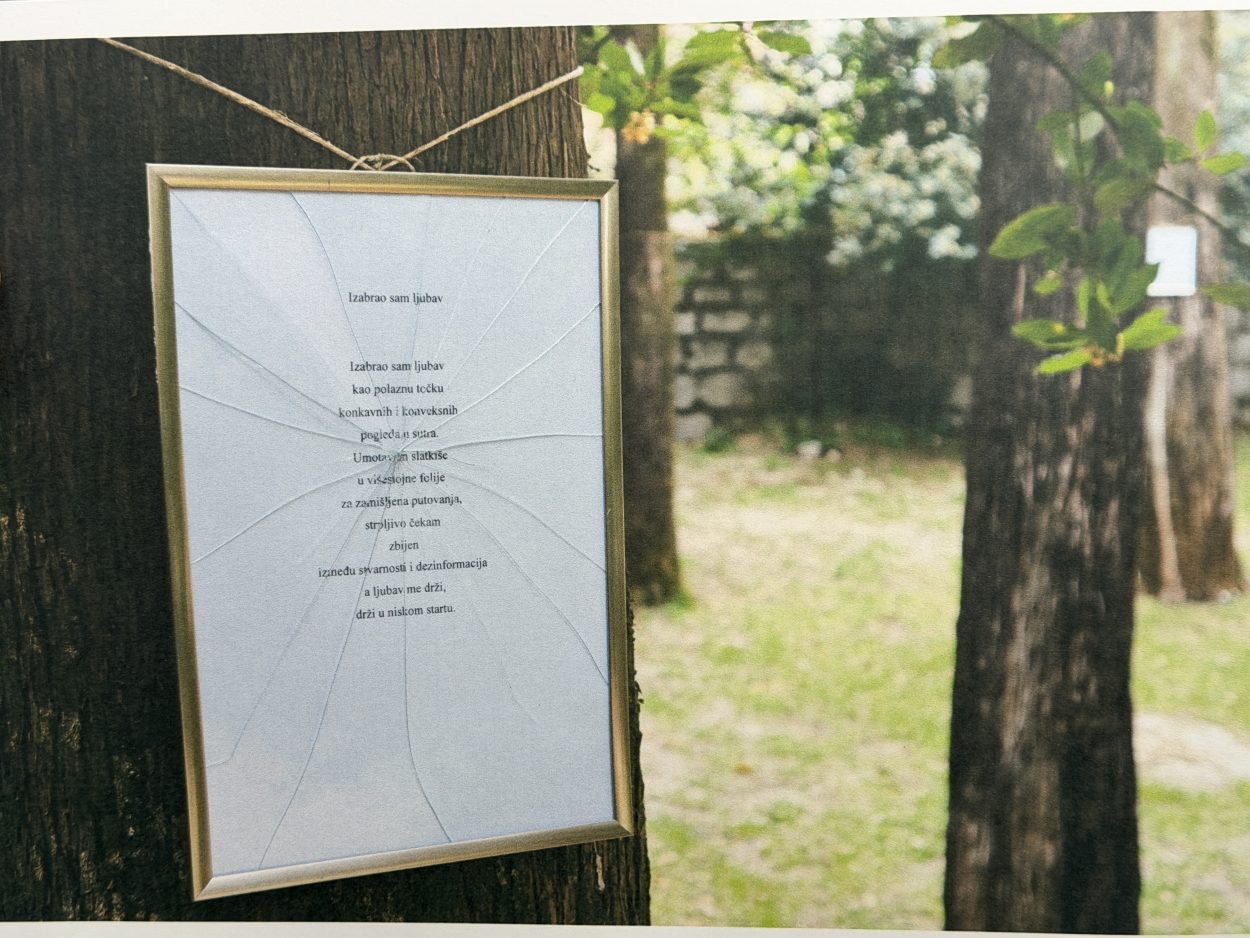 Izabrao sam ljubav
Izabrao sam ljubav
kao polaznu točku
konkavnih i konveksnih
pogleda u sutra.
Umotavam slatkiše
u višeslojne folije
za zamišljena putovanja,
strpljivo čekam
zbijen
između stvarnosti i dezinformacija
a ljubav me drži,
drži u niskom startu.